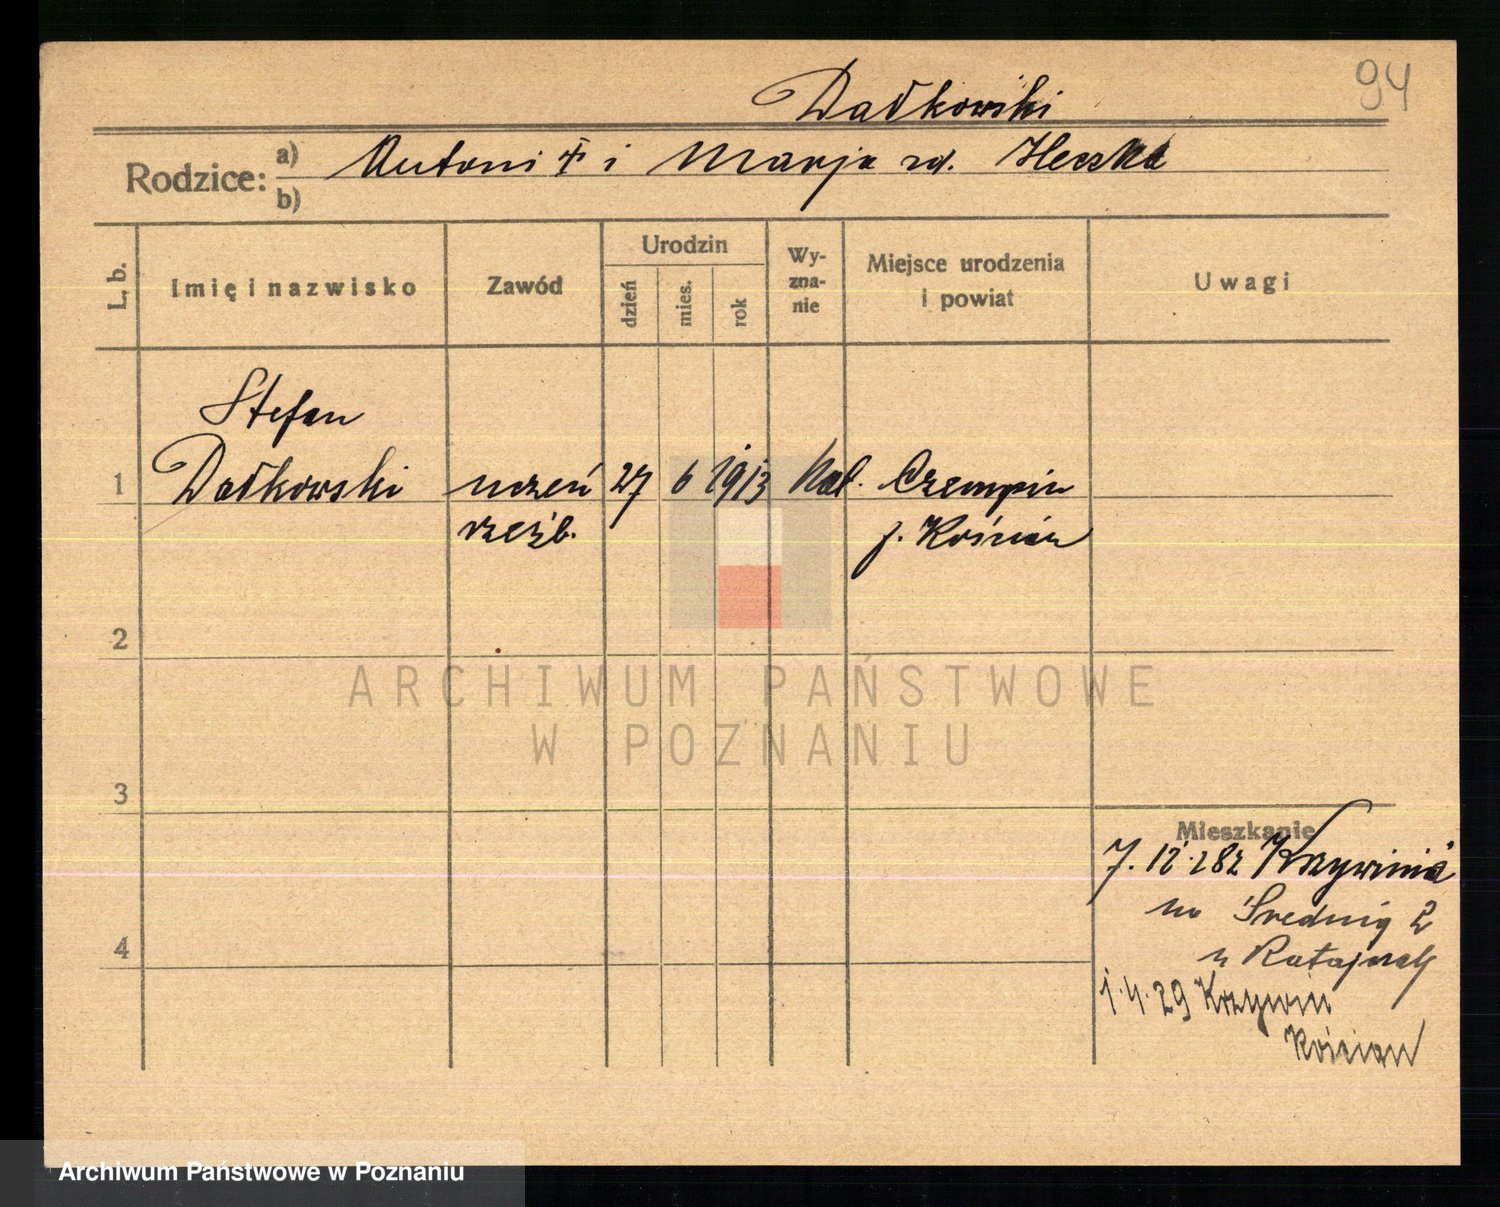 94
Dadkowski
Rodzice: a) Antoni i Marja rd. Heczka
b)
L. b. Imię i nazwisko Zawód Urodzin dzień mies. rok Wyznanie Miejsce urodzenia i powiat Uwagi
Stefan
1 Dadkowski uczeń 27 6 1913 kat. Czempin
rzeźb. p. Kościan
2
3
Mieszkanie
7. 12. 282 Krzywinia
na Średniej 2
u
4
1.4.29 Krzywin
Kościan
ARCHIWUM PAŃSTWOWE
W POZNANIU
Archiwum Państwowe w Poznaniu